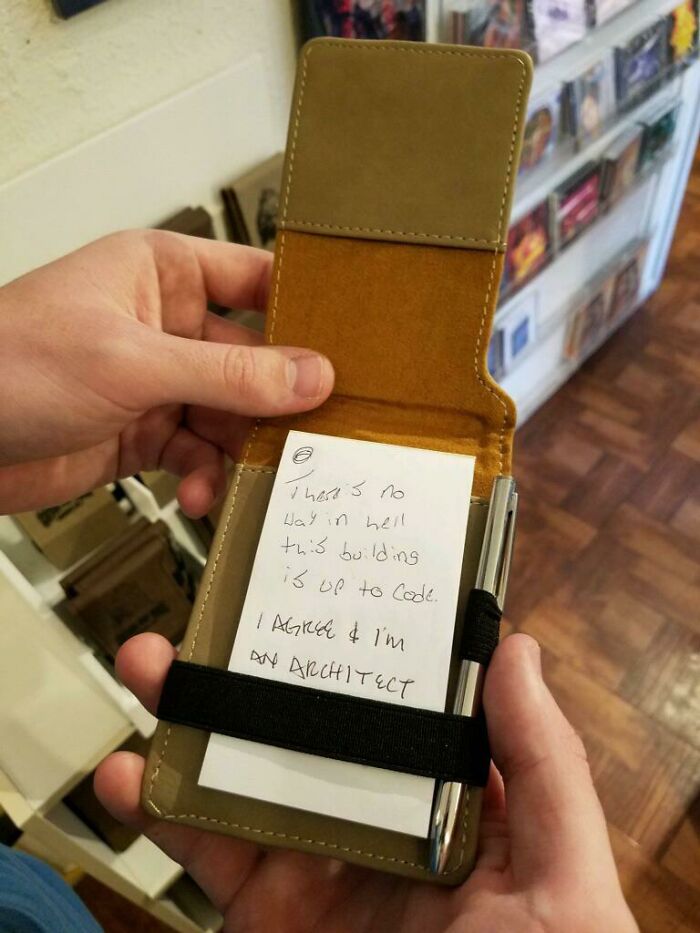 There's no
way in hell
this building
is up to code.
I AGREE & I'M
AN ARCHITECT